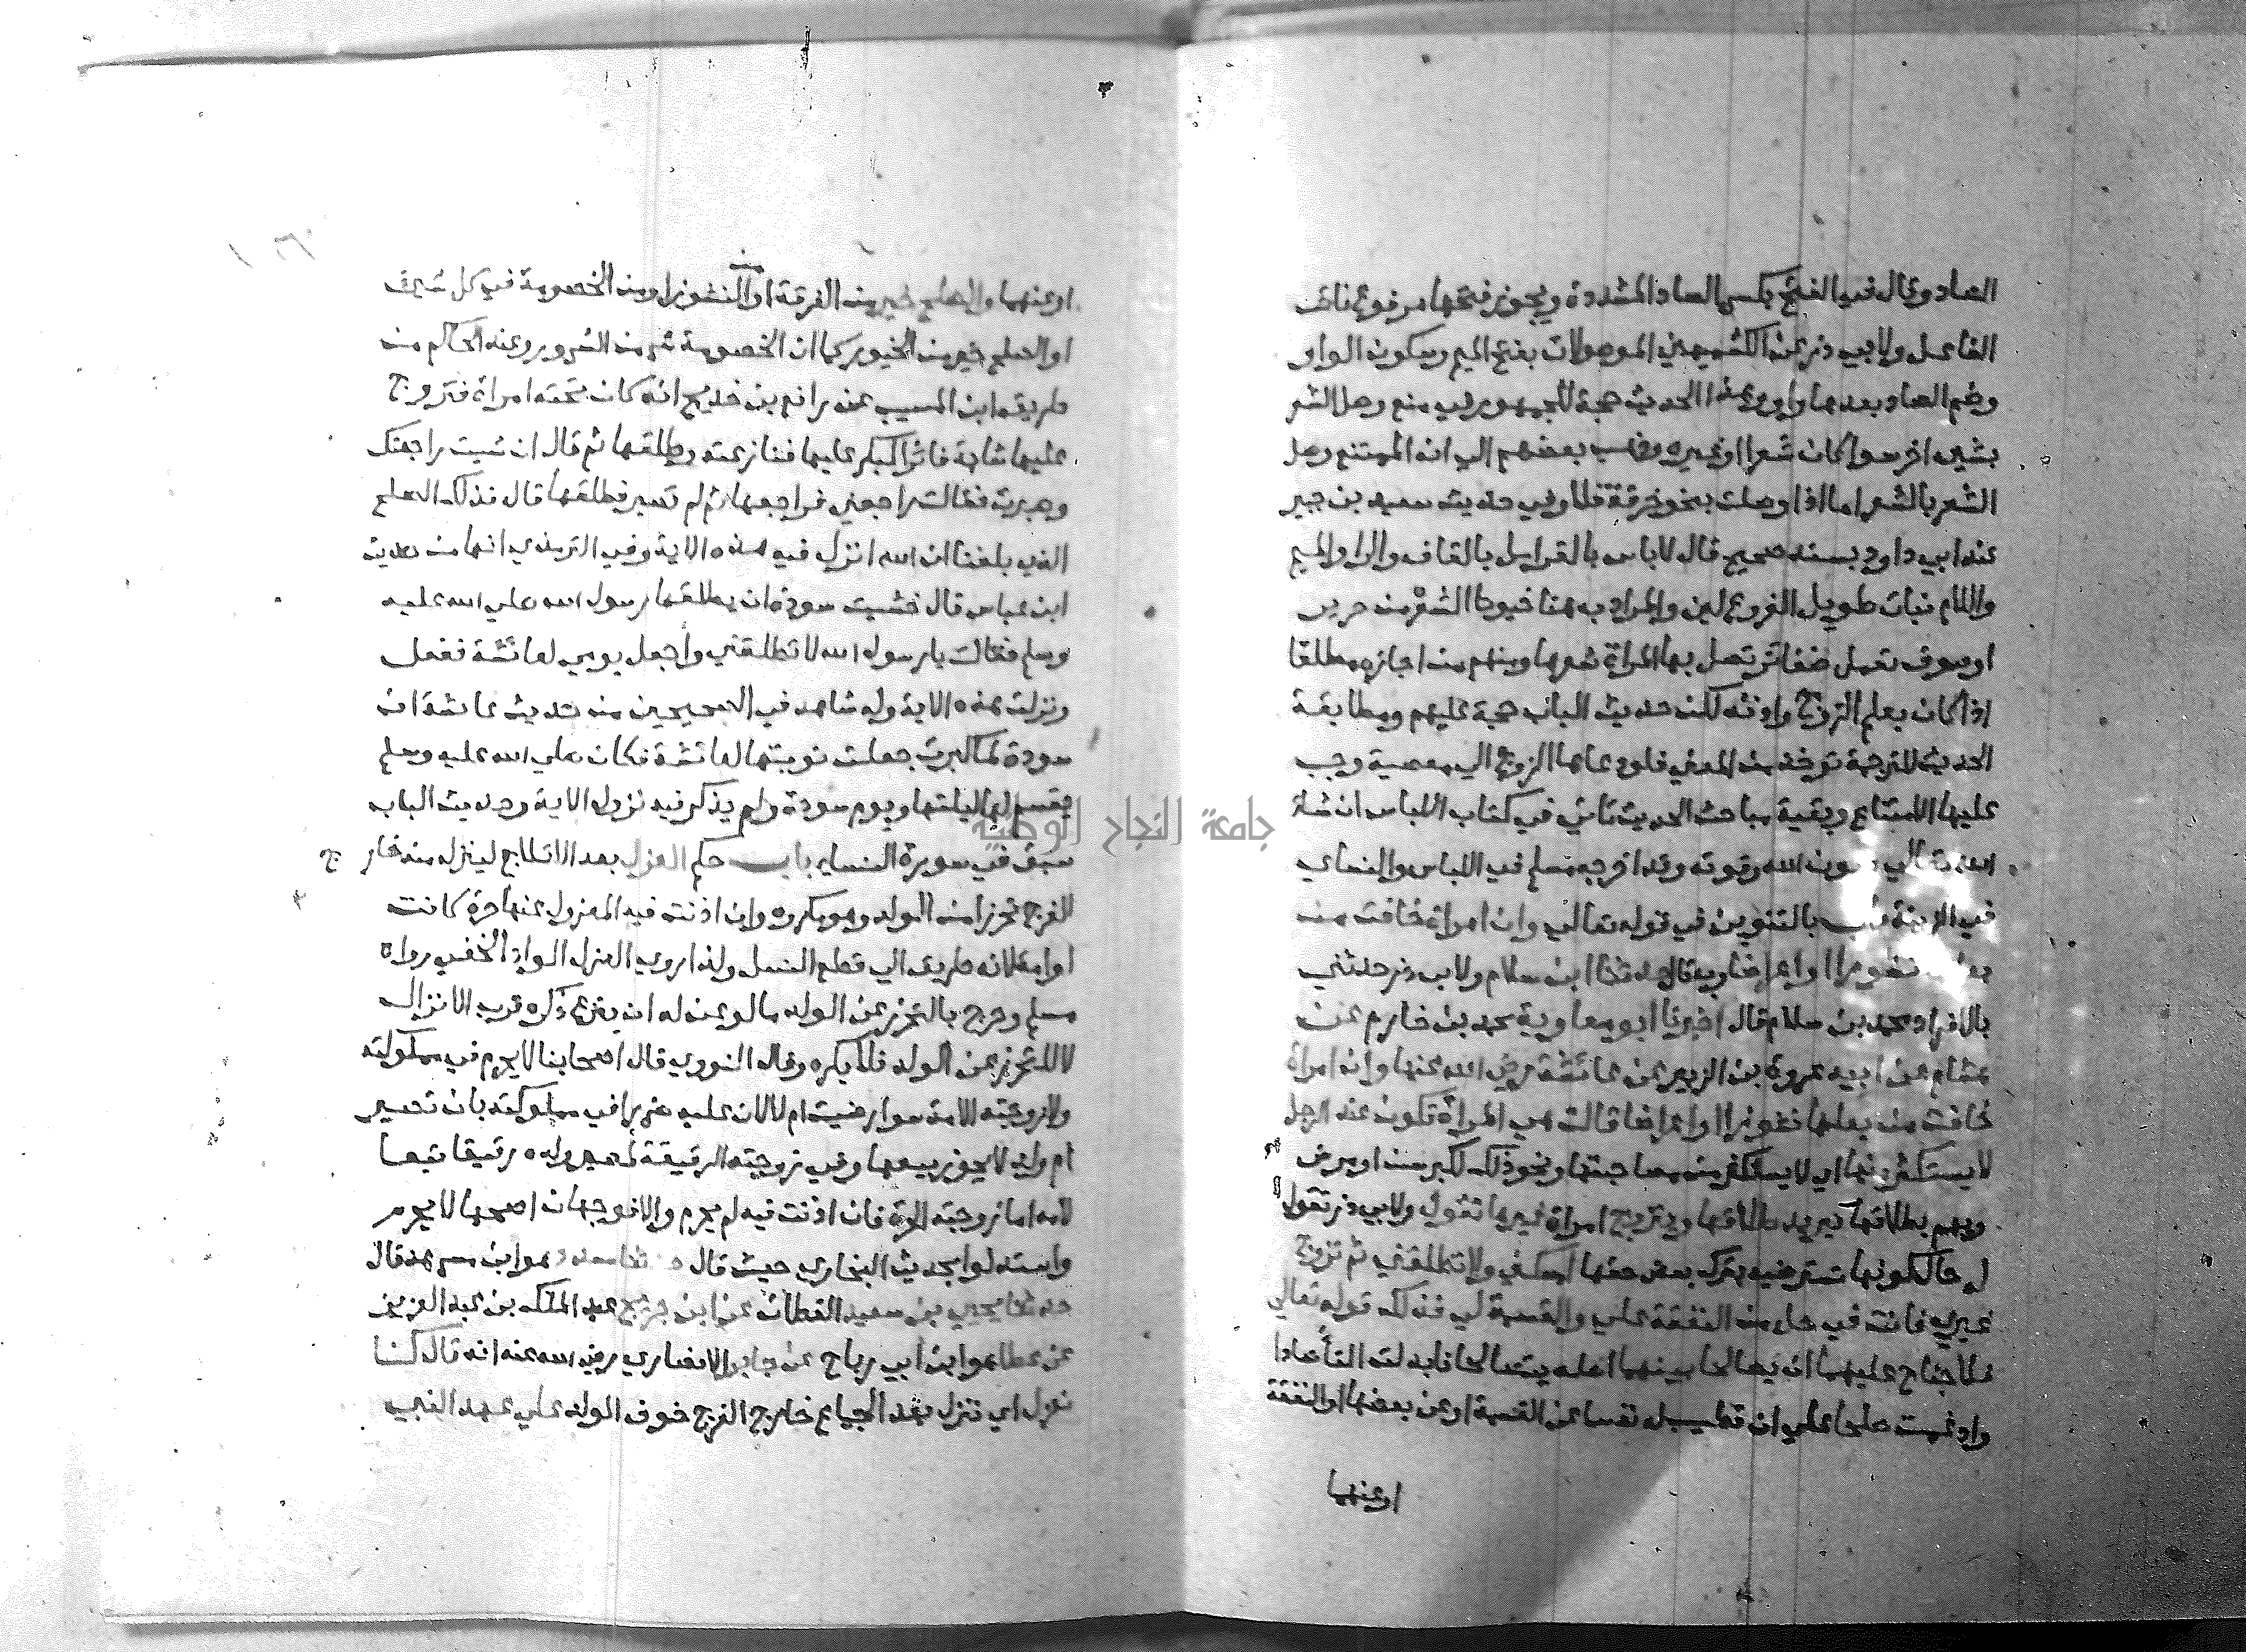 الصاد وقال في الفتح بكسر الصاد المشددة ويجوز فتحها مرفوع نائب
الفاعل ولابي ذر عن الكشميهني الموصولات بفتح الميم وسكون الواو
وضم الصاد بعدها واو وهذا الحديث حجة للجمهور في منع وصل الشعر
بشي اخر سوا كان شعرا او غيره وذهب بعضهم الي ان الممتنع وصل
الشعر بالشعر اما اذا وصلت بنحو خرقة فلا وفي حديث سعيد بن جبير
عند ابي داود بسند صحيح قال لا باس بالقرامل بالقاف والرا والميم
واللام نبات طويل الفروع لين والمراد به هنا خيوط الشعر من حرير
او صوف تعمل ضفائر تصل بها المراة شعرها ومنهم من اجازه مطلقا
اذا كان بعلم الزوج واذنه لكن حديث الباب حجة عليهم ومطابقة
الحديث للترجمة توخذ من المعني فلو دعاها الزوج الي معصية وجب
عليها الامتناع وبقية مباحث الحديث تاتي في كتاب اللباس ان شا
الله تعالي بعون الله وقوته وقد اخرجه مسلم في اللباس والنساي
في الزينة باب بالتنوين في قوله تعالي وان امراة خافت من
بعلها نشوزا او اعراضا وبه قال حدثنا ابن سلام ولابي ذر حدثني
بالافراد محمد بن سلام قال اخبرنا ابو معاوية محمد بن خازم عن
هشام عن ابيه عروة بن الزبير عن عائشة رضي الله عنها وان امراة
خافت من بعلها نشوزا او اعراضا قالت هي المراة تكون عند الرجل
لا يستكثر منها اي لا يستكثر من مصاحبتها ونحو ذلك لكبر سن او مرض
ويهم بطلاقها يريد طلاقها ويتزوج امراة غيرها تقول ولابي ذر تقول
له حال كونها تسترضيه بترك بعض حقها امسكني ولا تطلقني ثم تزوج
غيري فانت في حل من النفقة علي والقسمة لي فذلك قوله تعالي
فلا جناح عليهما ان يصالحا بينهما اصله يتصالحا فابدلت التا صادا
وادغمت صلحا علي ان تطيب له نفسا عن القسمة او عن بعضها او النفقة
او عنهما
او عنهما والصلح خير من الفرقة او النشوز او من الخصومة في كل شي
او الصلح خير من الخيور كما ان الخصومة شر من الشرور وعند الحاكم من
طريق ابن المسيب عن رافع بن خديج انه كان تحته امراة فتزوج
عليها شابة فاثر البكر عليها فنازعته وطلقها ثم قال ان شيت راجعتك
وصبرت فقالت راجعني فراجعها ثم لم تصبر فطلقها قال فذلك الصلح
الذي بلغنا ان الله انزل فيه هذه الاية وفي الترمذي انها من حديث
ابن عباس قال خشيت سودة ان يطلقها رسول الله صلي الله عليه
وسلم فقالت يا رسول الله لا تطلقني واجعل يومي لعائشة ففعل
ونزلت هذه الاية وله شاهد في الصحيحين من حديث عائشة ان
سودة لما كبرت جعلت نوبتها لعائشة فكان صلي الله عليه وسلم
يقسم لها ليلتها ويوم سودة ولم يذكر فيه نزول الاية وحديث الباب
سبق في سورة النساء باب حكم العزل بعد الايلاج لينزل منه خار ج
الفرج تحرزا من الولد وهو مكروه وان اذنت فيه المعزول عنها حرة كانت
او امة لانه طريق الي قطع النسل ولذا روي العزل الواد الخفي رواه
مسلم وخرج بالتحرز عن الولد ما لو عن له ان ينزع ذكره قرب الانزال
لا للتحرز عن الولد فلا يكره وقال النووي قال اصحابنا لا يحرم في مملوكته
ولا زوجته الامة سوا رضيت ام لا لان عليه ضررا في مملوكته بان تصير
ام ولد لا يجوز بيعها وفي زوجته الرقيقة لمصير ولده رقيقا تبعا
لامه اما زوجته الحرة فان اذنت فيه لم يحرم والا فوجهان اصحهما لا يحرم
واستدلوا بحديث البخاري حيث قال حدثنا مسدد هو ابن مسرهد قال
حدثنا يحيي بن سعيد القطان عن ابن جريج عبد الملك بن عبد العزيز
عن عطا هو ابن ابي رباح عن جابر الانصاري رضي الله عنه انه قال كنا
نعزل اي ننزل بعد الجماع خارج الفرج خوف الولد علي عهد النبي
جامعة النجاح الوطنية